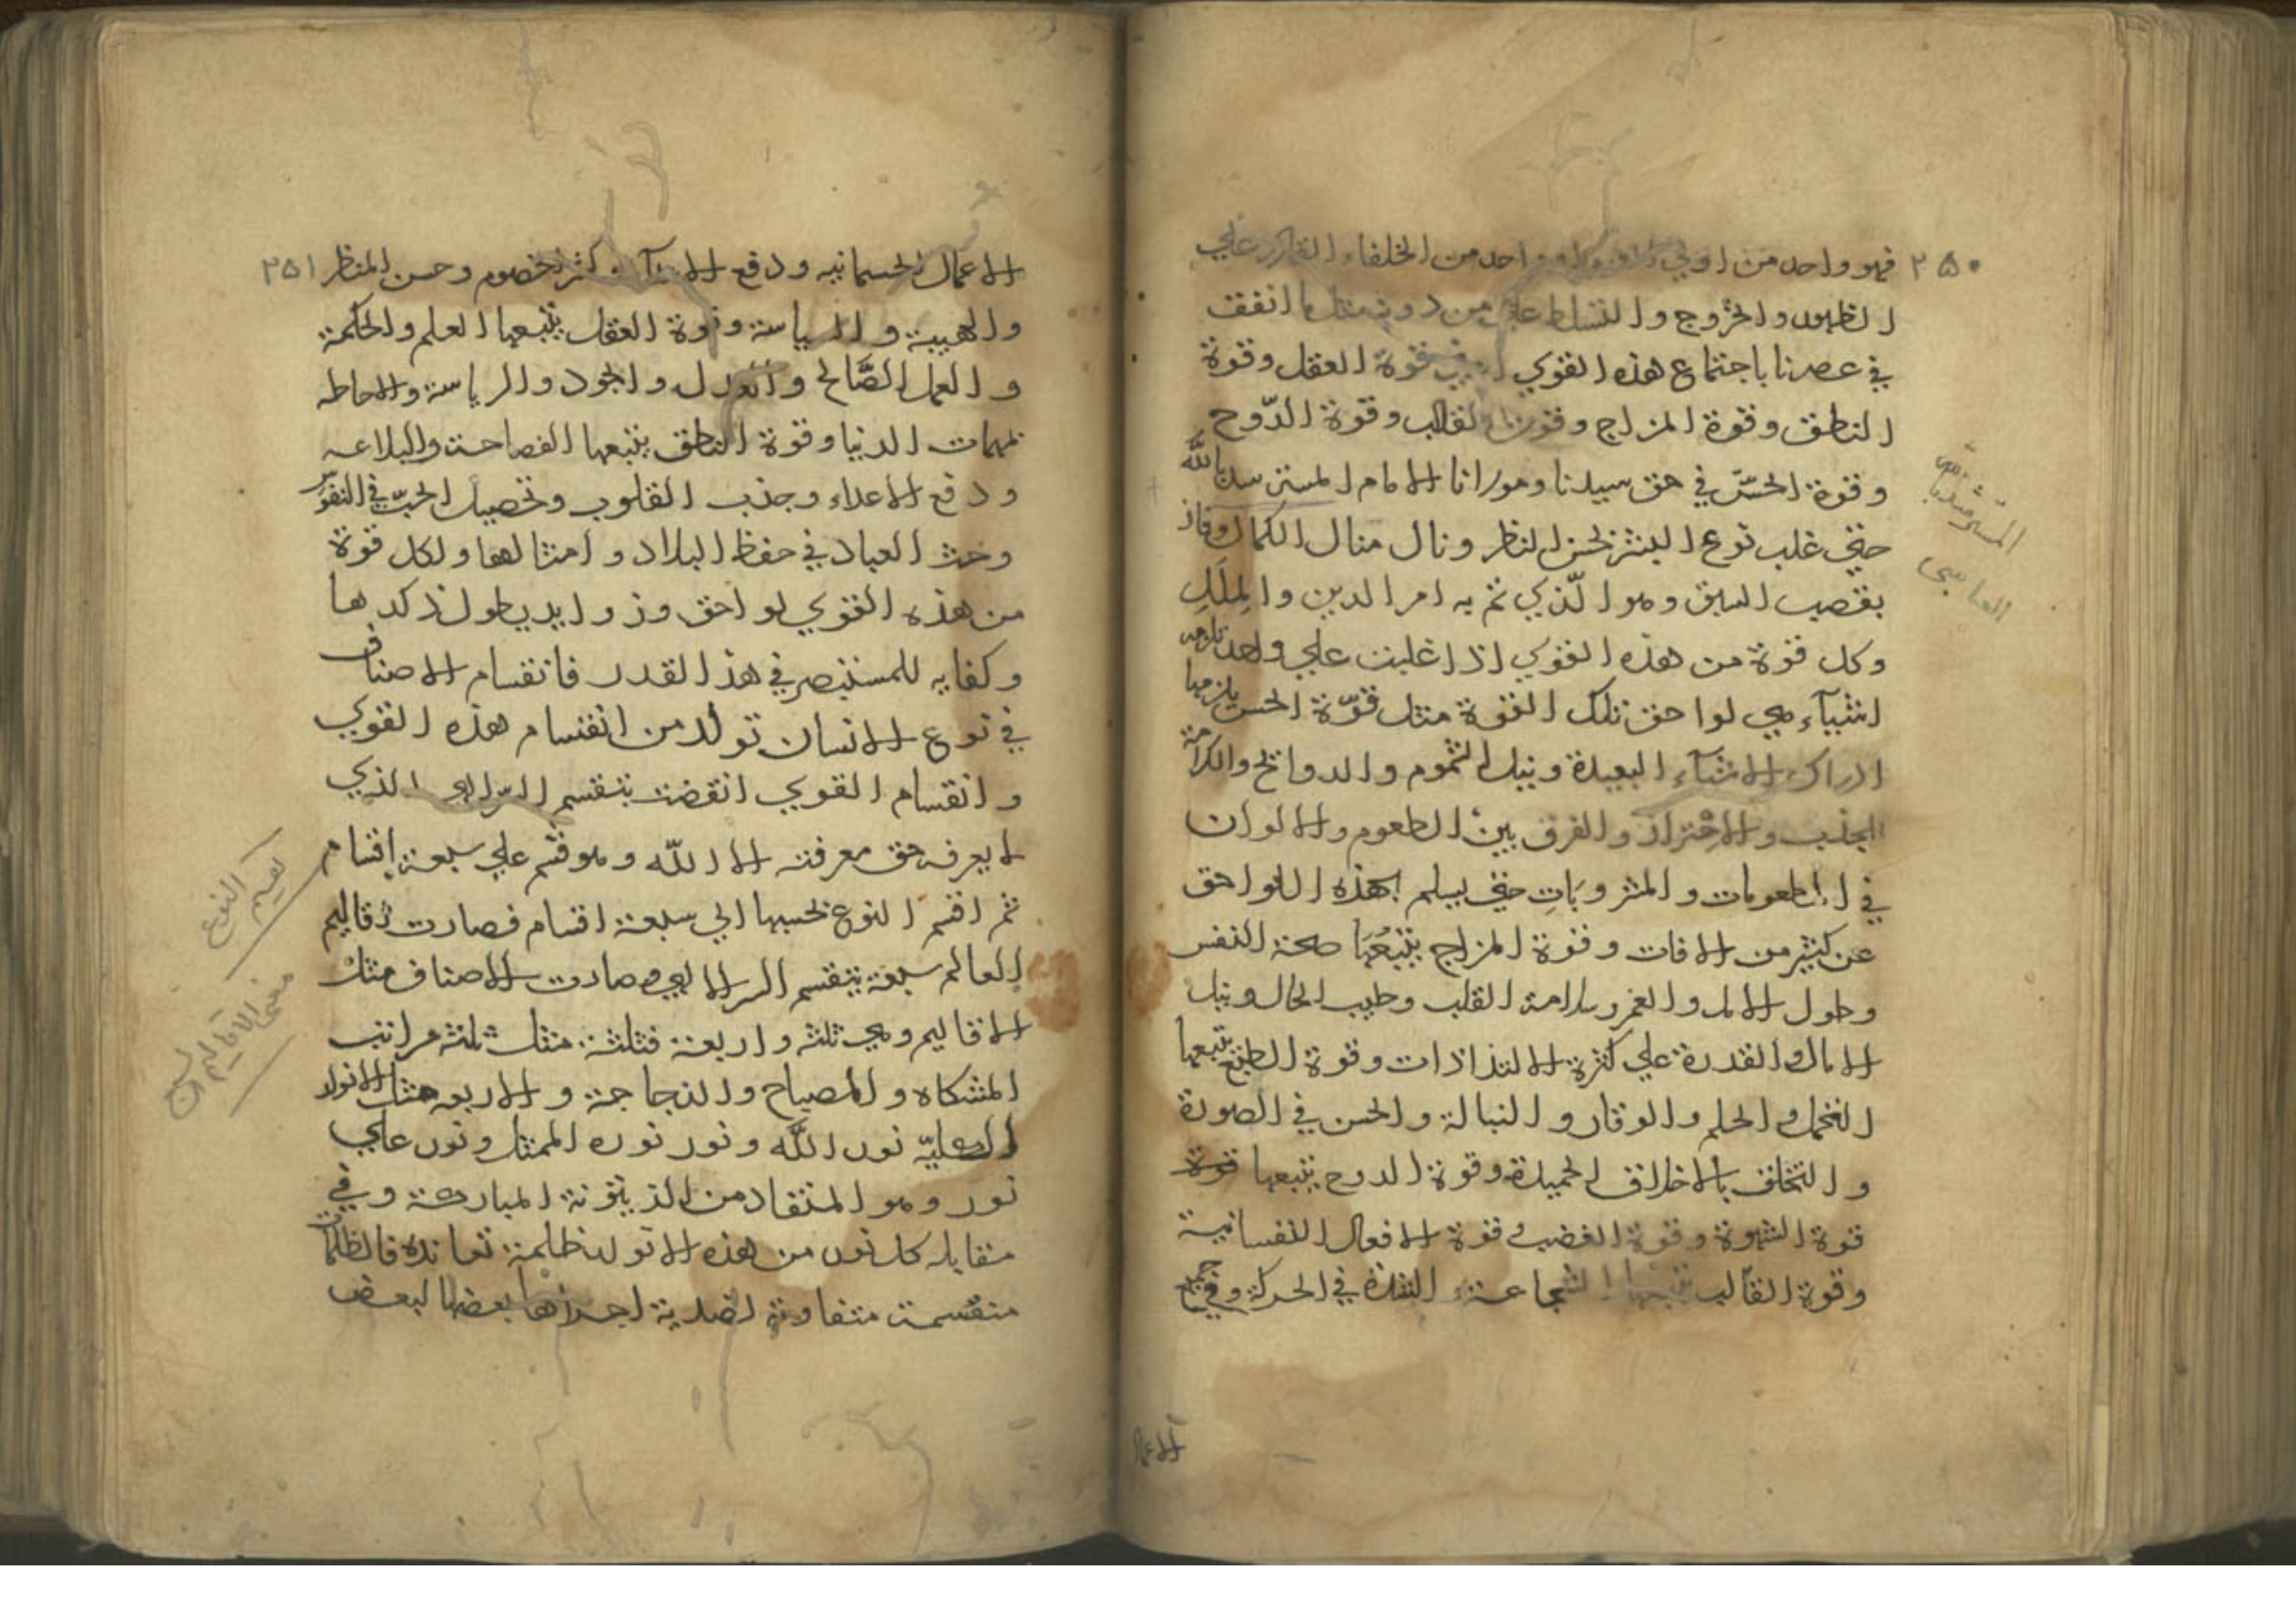 ٢٥٠
فهو واحد من اولي واحد من الخلفاء القادر علي
الظهور والخروج والتسلط علي من دونه مثل ما اتفق
في عصرنا باجتماع هذه القوي قوة العقل وقوة
النطق وقوة المزاج وقوة القالب وقوة الروح
وقوة الحس في حق سيدنا ومولانا الامام المسترشد بالله
حتي غلب نوع البشر بحسن النظر ونال منال الكمال وفاز
بقصب السبق وهو الذي تم به امر الدين والملل
وكل قوة من هذه القوي اذا غلبت علي واحد تلزمه
اشياء هي لواحق تلك القوة مثل قوة الحس يلزمها
ادراك الاشياء البعيدة ونيل الشموم والروائح والكرامة
الجذب والاحتراز والفرق بين الطعوم والالوان
في المطعومات والمشروبات حتي يسلم بهذه اللواحق
عن كثير من الافات وقوة المزاج يتبعها صحة النفس
وطول الامل والعمر وسلامة القلب وطيب الحال ونيل
الامال والقدرة علي كثرة الالتذاذات وقوة الطبع يتبعها
التحمل والحلم والوقار والنبالة والحسن في الصورة
والتخلق بالاخلاق الحميدة وقوة الروح يتبعها قوة
قوة الشهوة وقوة الغضب وقوة الافعال النفسانية
وقوة القالب يتبعها الشجاعة والشدة في الحركة وفي جميع
الاعمال
المسترشد بالله
العباسي
٢٥١
الاعمال الجسمانيه ودفع كثر الخصوم وحسن المنظر
والهيبة والسياسة وقوة العقل يتبعها العلم والحكمة
والعمل الصالح والعدل والجود والرياسة والاحاطه
بمهمات الدنيا وقوة النطق يتبعها الفصاحة والبلاغه
ودفع الاعداء وجذب القلوب وتحصيل الحب في النفوس
وحث العباد في حفظ البلاد وامثالها ولكل قوة
من هذه القوي لواحق وزوايد يطول ذكرها
وكفايه للمستبصر في هذا القدر فانقسام الاصناف
في نوع الانسان تولد من انقسام هذه القوي
وانقسام القوي انقضت بتقسم السر الالهي الذي
لا يعرف حق معرفته الا الله وهو قسم علي سبعة اقسام
ثم اقسم النوع بحسبها الي سبعة اقسام فصارت اقاليم
العالم سبعة بتقسم السر الالهي وصارت الاصناف مثل
الاقاليم وهي ثلثة واربعة فثلثة مثل ثلثة مراتب
المشكاه والمصباح والزجاجة والاربعه مثل الانوار
العليّه نور الله ونور نوره الممثل ونور علي
نور وهو المتقاد من الزيتونة المباركة وفي
مقابله كل نور من هذه الانوار ظلمة تعانده فالظلمات
منقسمة متفاوتة لضدية اجزاها بعضها لبعض
تقسيم النوع
معنى الاقاليم السبع